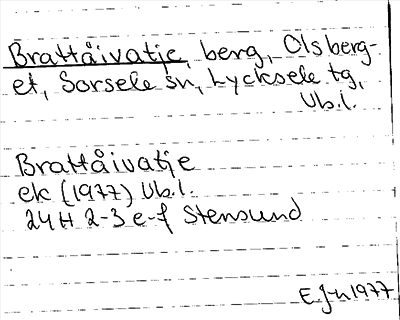 Brattåivatje, berg, Olsberg-
et, Sorsele sn, Lycksele tg,
Vb.l.
Brattåivatje
ek (1977) Vb.l.
24H 2-3 e-f Stensund
E.J-n 1977